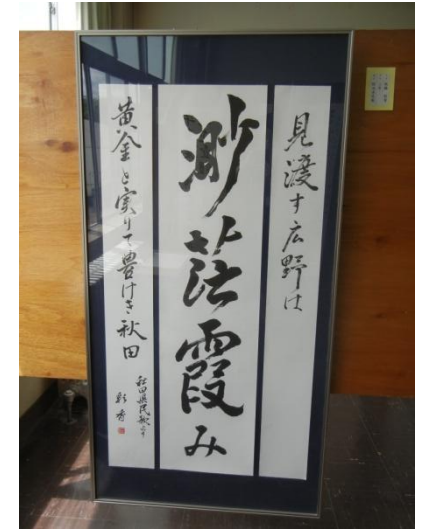 見渡す広野は
渺茫霞み
黄金と実りて豊けき秋田
秋田県民歌より